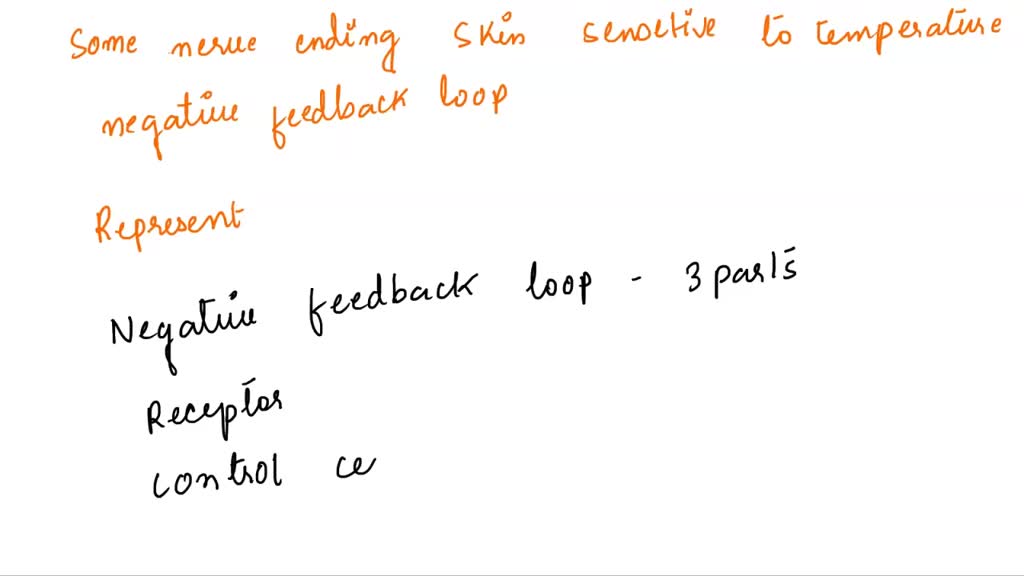 Some nerve ending skin sensetive to temperature
negative feedback loop
Represent
Negative feedback loop - 3 parts
Receptor
control ce